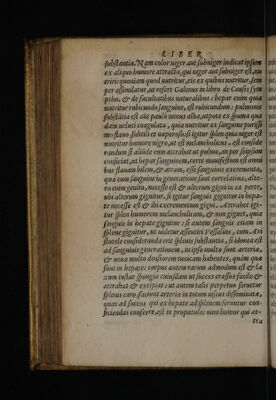 LIBER
substantia. Nam color niger aut subniger indicat ipsum
ex aliquo humore attracto, qui niger aut subniger est, nu
triri: quoniam quod nutritur, eis ex quibus nutritur, sem
per assimilatur, ut refert Galenus in libro de Causis sym
ptho. & de facultatibus naturalibus: hepar enim quod
nutritur rubicundo sanguine, est rubicundum: pulmonis
substãtia est aũt paulo minus alba, utpote ex spuma qua
dam ueluti coagulata, quia nutritur ex sanguine purissi
mo flauo, subtili et uaporoso: si igitur splen quia niger est
nutritur humore nigro, aut est melancholicus, est conside
randum si aliũde eum attrahat ut pulmo, an per seipsum
conficiat, ut hepar sanguinem, certe manifestum est omni
bus flauam bilem, & atram, esse sanguinis excrementa,
quæ cum sanguine in generatione sunt correlatiua, alte-
ro enim genito, necesse est & alterum gigni in ea parte,
ubi alterum gignitur, si igitur sanguis gignitur in hepa-
te necesse est & ibi excrementum gigni. Attrahet igi-
tur splen humorem melancholicum, & non gignet, quia
sanguis in hepate gignitur: si autem sanguis etiam in
splene gignitur, ut uidetur assentiri Vessalius, cum Ari
stotele consideranda erit splenis substantia, si idonea est
ad sanguinis generationem, in ipso multæ sunt arteriæ,
& uena multo deosfersum tunicam habentes, quàm quæ
sunt in hepate: corpus autem rarum admodum est & la
xum instar spongiæ cuiusdam ut succos crassos facile &
attrahat & excipiat: ut autem talis perpetuo seruetur
splenis caro faciunt arteriæ in totum uiscus disseminatæ,
quas ad succos qui ex hepate ad splenem feruntur con-
ficiendas conferre, est in propatulo: nam humor qui at-
tra